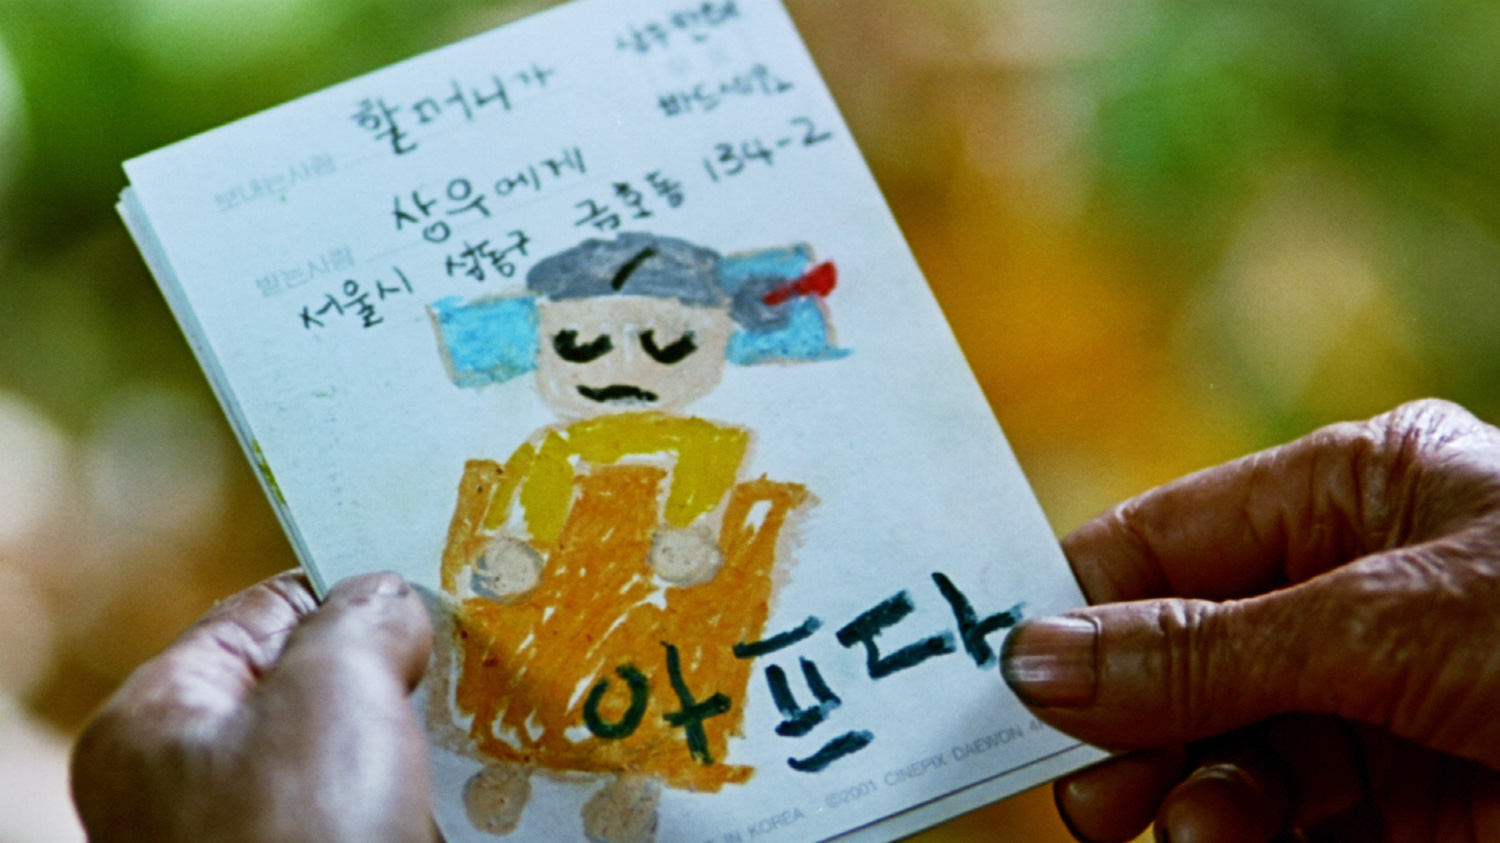 할머니가
상우한테
바드세요
보내는사람
상우에게
받는사람
서울시 성동구 금호동 134-2
아프다
IN KOREA ©2001 CINEPIX DAEWON